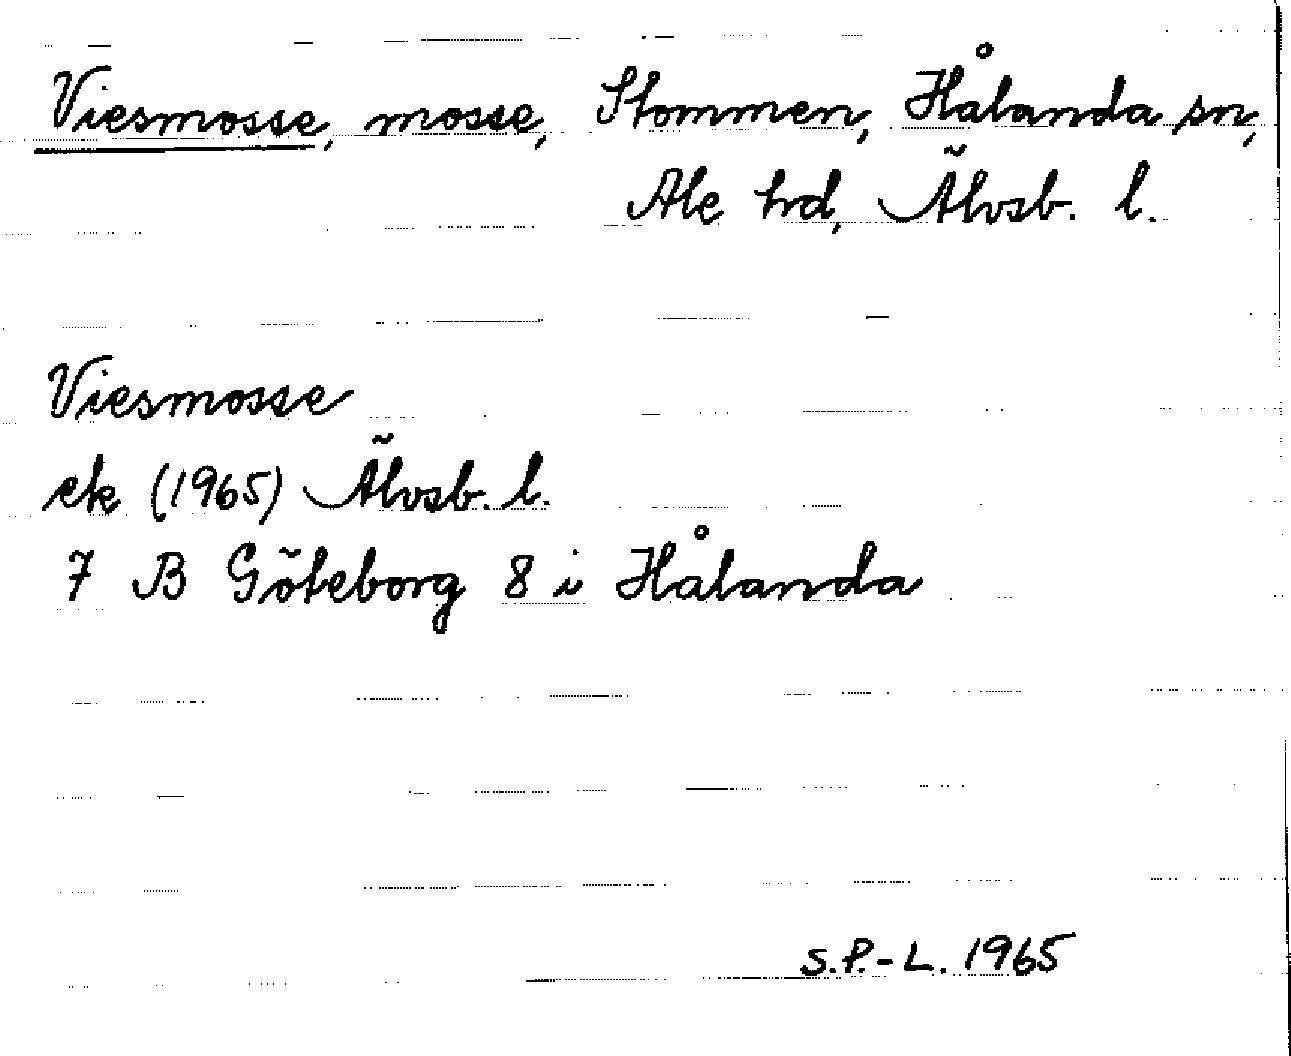 Viesmosse, mosse, Stommen, Hålanda sn,
Ale hd, Älvsb. l.
Viesmosse
ek (1965) Älvsb. l.
7 B Göteborg 8 i Hålanda
S.P.-L. 1965